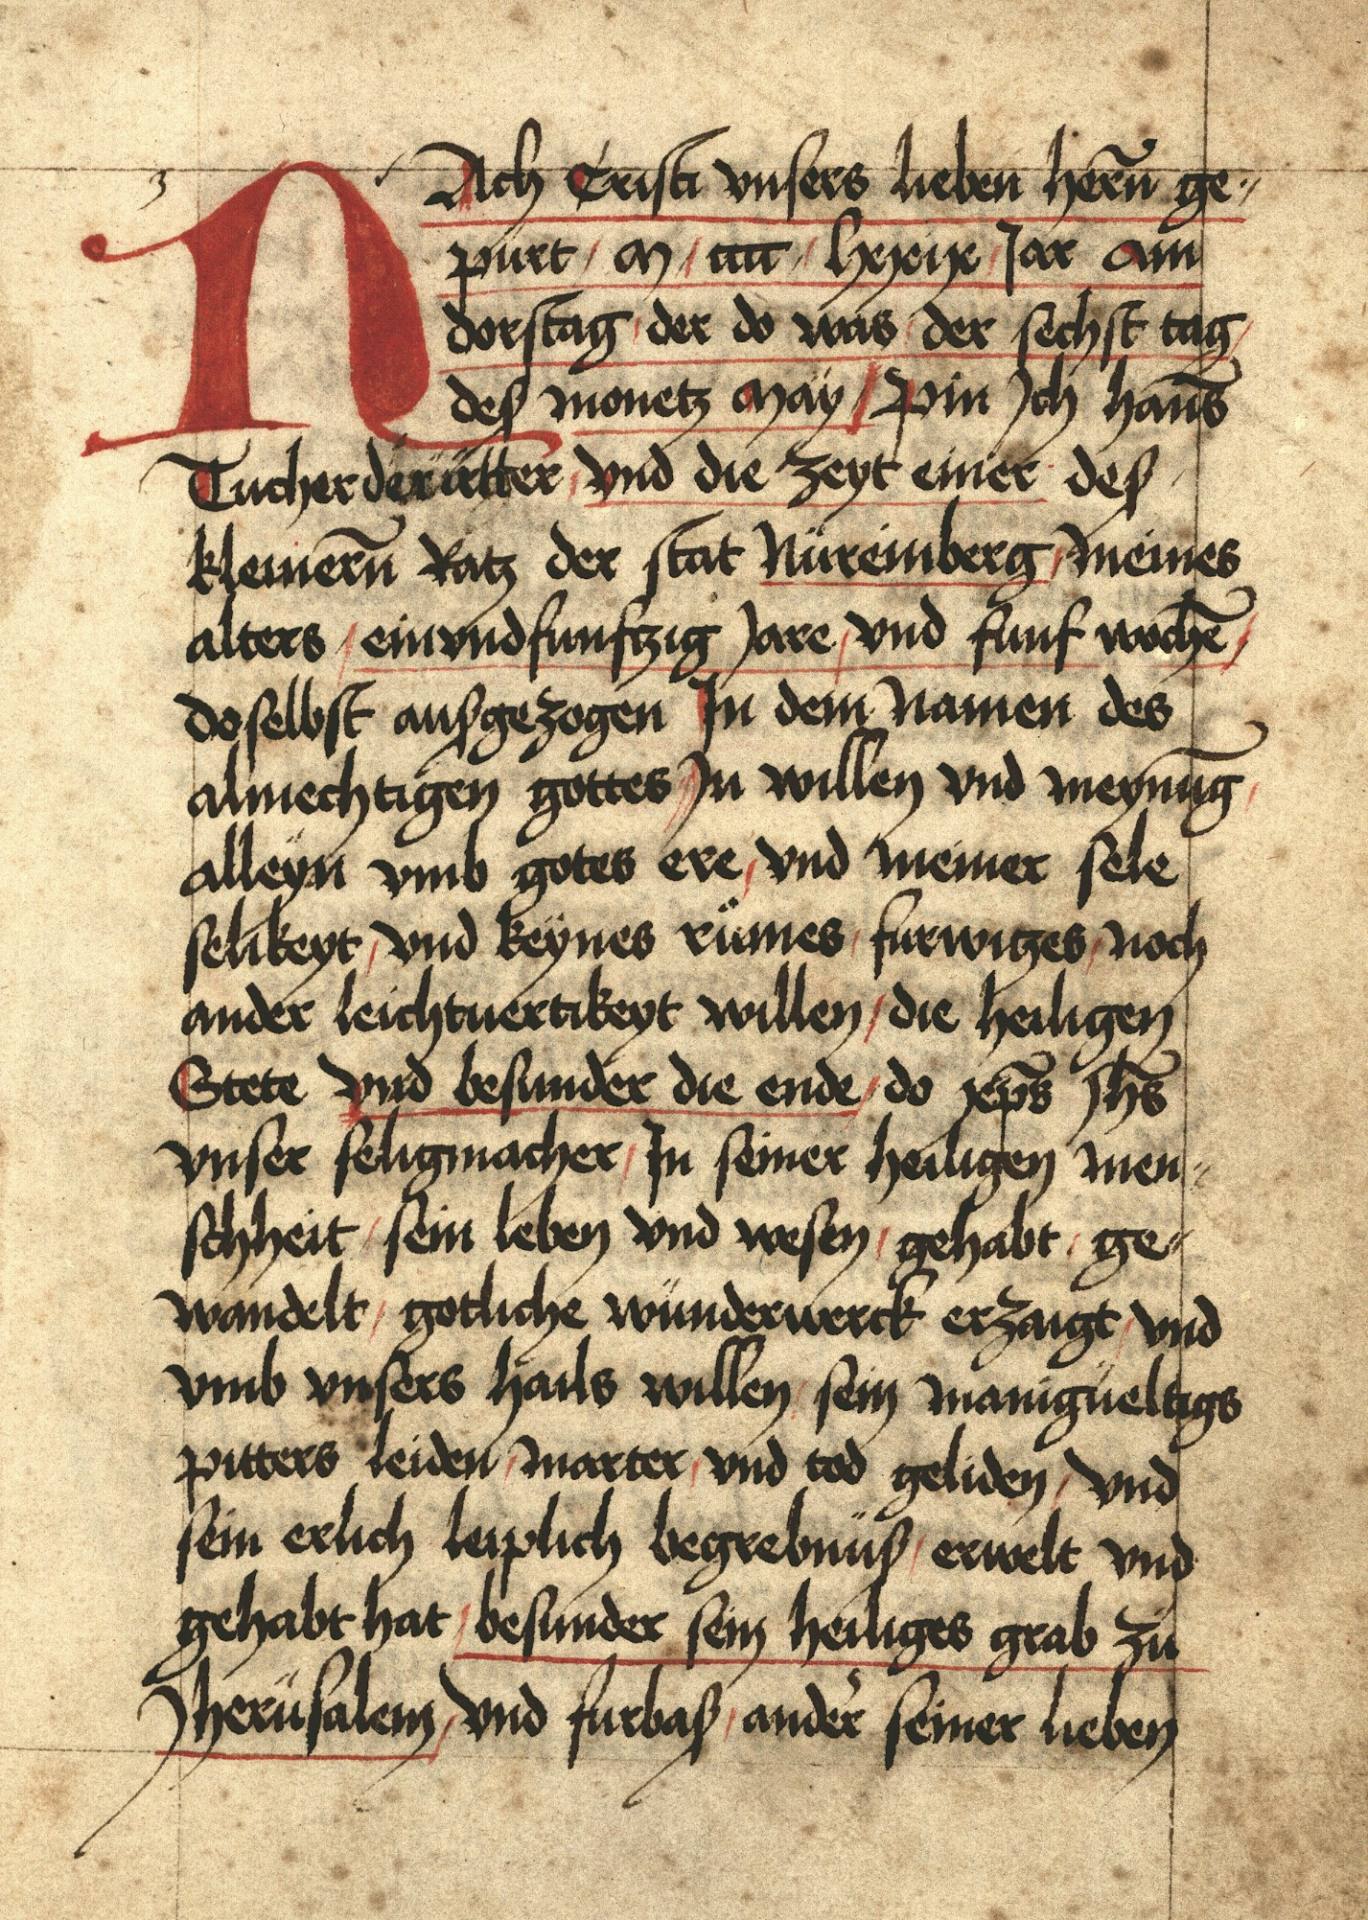 NAch Cristi vnsers lieben hern̄ ge⸗
purt / M / cccc / lxxix Jar am
dorstag / der do was / der sechst tag /
deß monetz May / Pin Jch hann̄s
Tucher der ... / vnd die zeyt einer deß
kleinern̄ Ratz der stat Nüremberg / Meines
alters / einvndfunftzig Jare / vnd funf wochē /
doselbst außgezogen Jn dem Namen des
almechtigen gottes / Jn willen vnd meynūg /
alleyn vmb gotes ere / vnd meiner sele
selikeyt / vnd keÿnes rümes / furwitzes / noch
ander leichtuertikeyt willen / die heiligen
Stete vnd besunder die ende / do xp̄s Jhs̄
vnser seligmacher / Jn seiner heiligen men⸗
schheit / sein leben vnd wesen / gehabt / ge⸗
wandelt / gotliche wünderwerck erzaigt / vnd
vmb vnsers hails willen / sein manigueltigs
pitters leiden / marter / vnd tod geliden / vnd
sein erlich leiplich begrebnüß / erwelt vnd
gehabt hat / besunder sein heiliges grab zü
Jherüsalem / vnd furbaß / ander seiner lieben